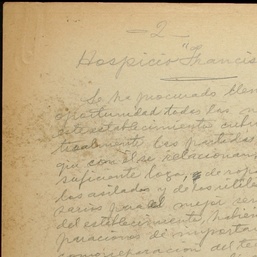 -2-
Hospicio "Francis
Se ha procurado llen
oportunidad todas las n
este establecimiento cubri
tualmente las partidas
que con él se relacionan
suficiente loza, de ropa
los asilados y de los útiles
sarios para el mejor ser
del establecimiento, habién
paraciones de importan
como reparación del te